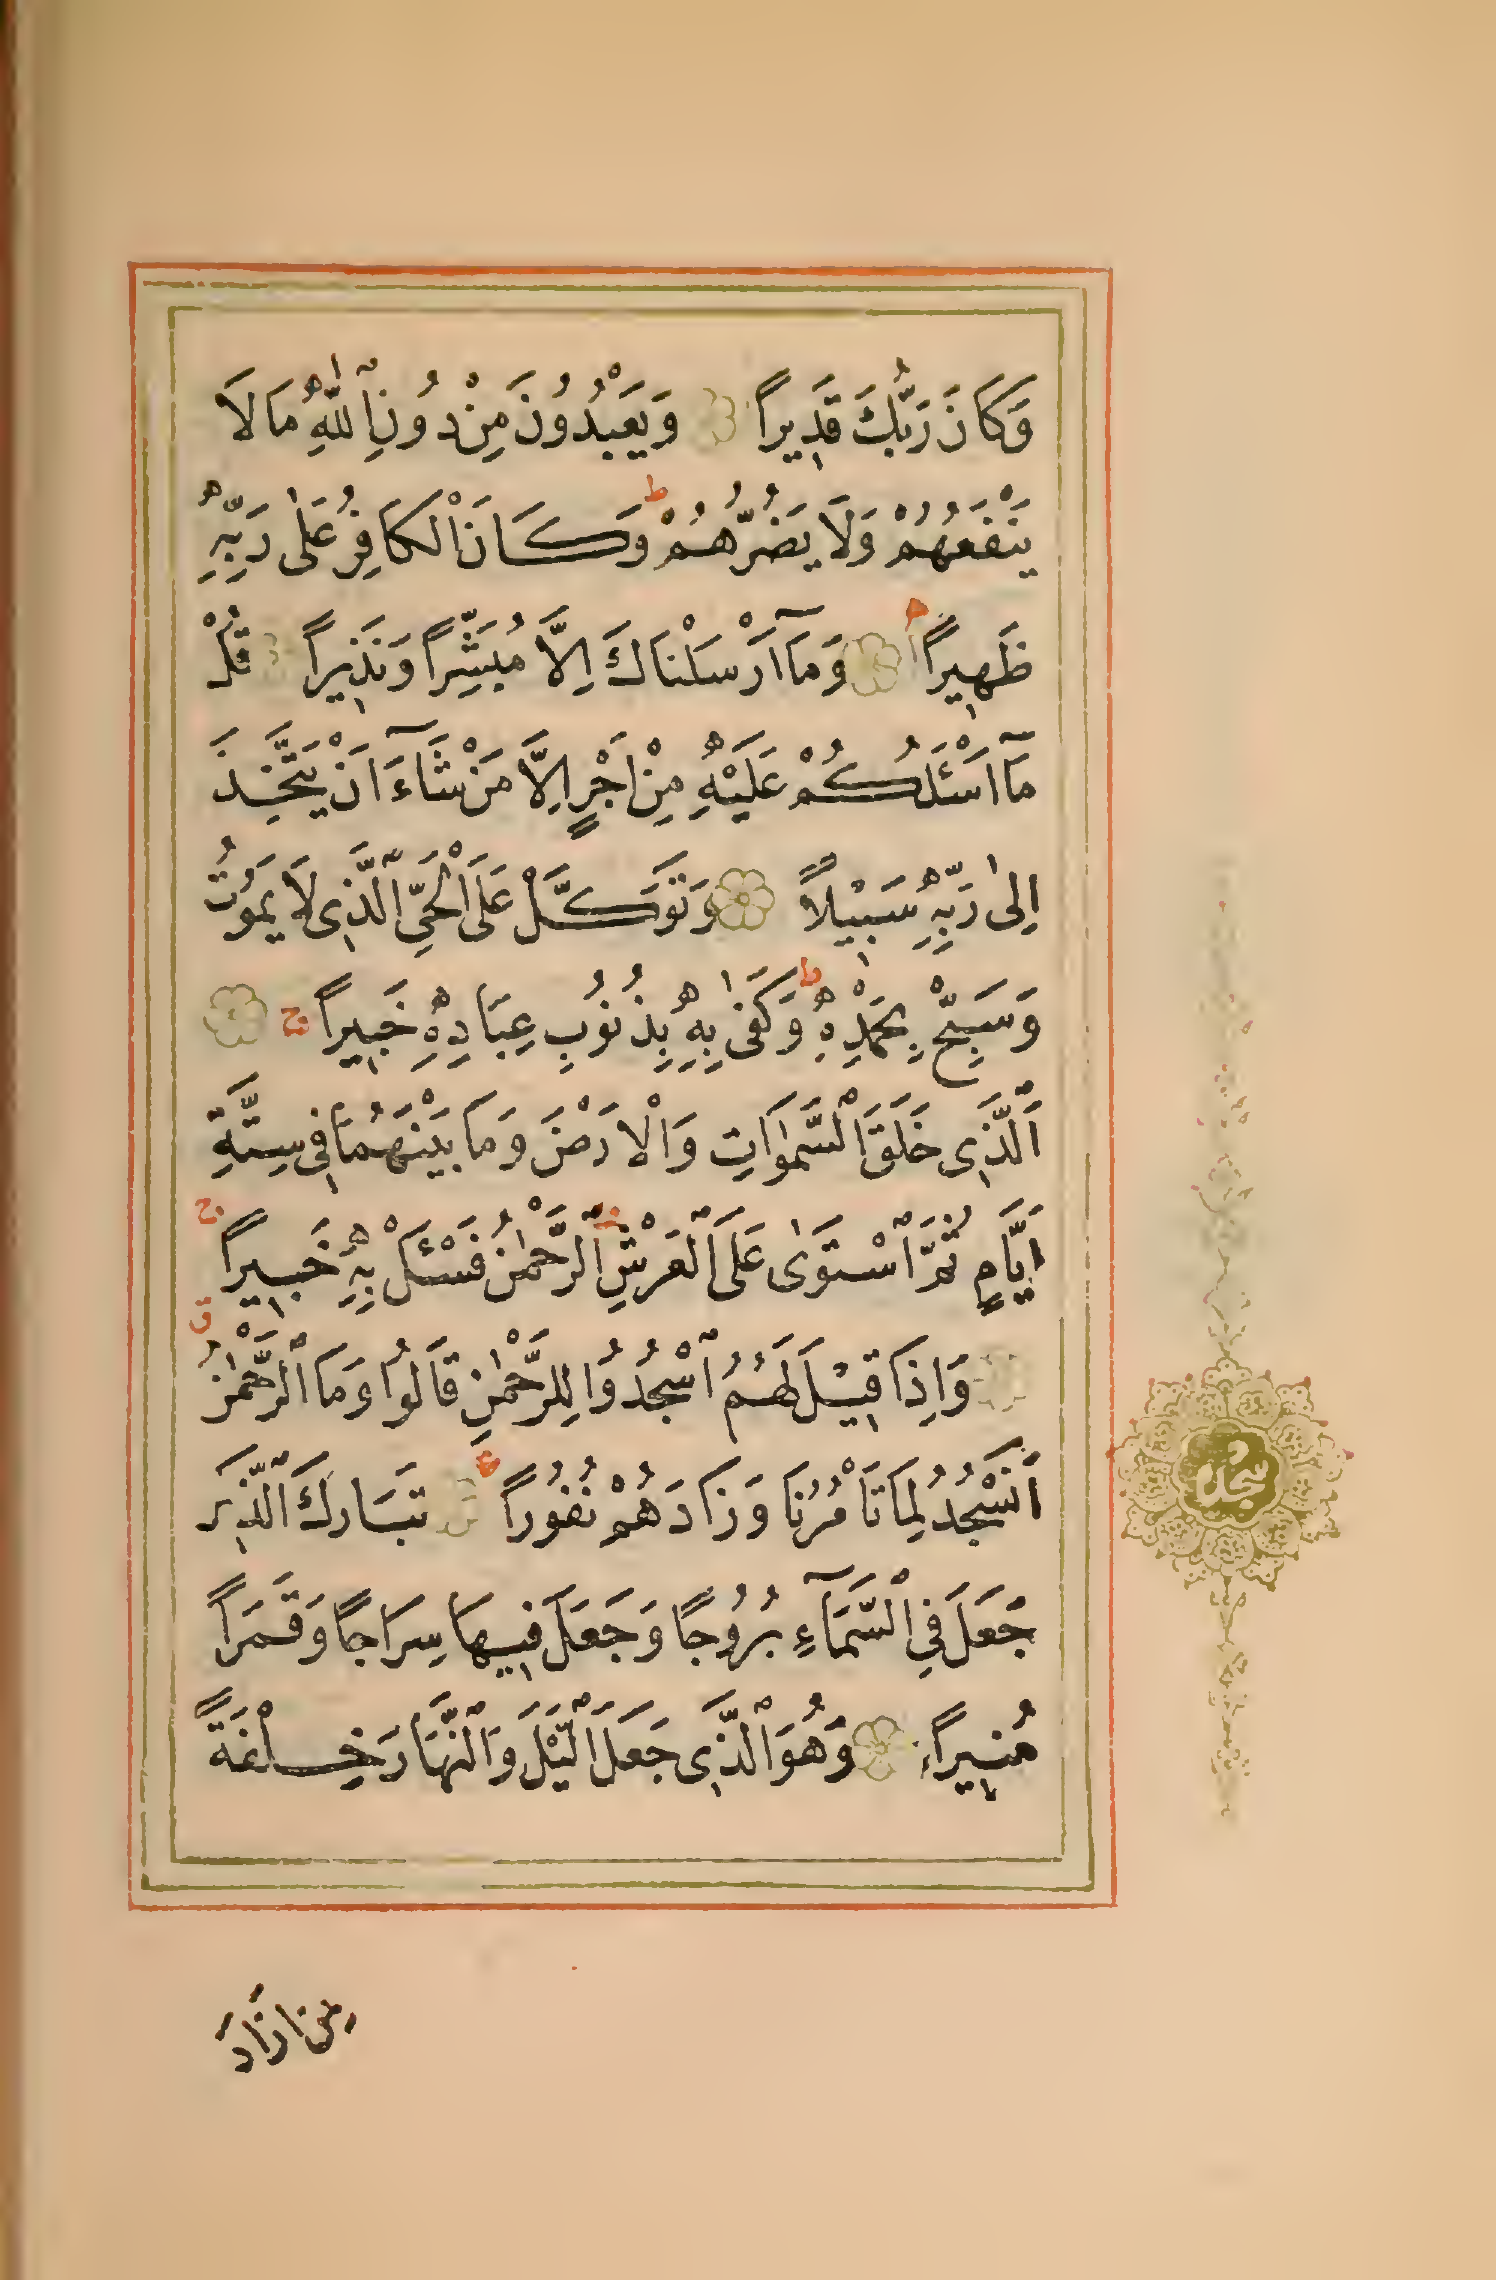 وَكَانَ رَبُّكَ قَدِيراً وَيَعْبُدُونَ مِنْ دُونِ ٱللّٰهِ مَا لَا
يَنْفَعُهُمْ وَلَا يَضُرُّهُمْ ط وَكَانَ ٱلْكَافِرُ عَلٰى رَبِّهِ
ظَهِيراً وَمَآ اَرْسَلْنَاكَ اِلَّا مُبَشِّراً وَنَذِيراً قُلْ
مَآ اَسْـَٔلُكُمْ عَلَيْهِ مِنْ اَجْرٍ اِلَّا مَنْ شَآءَ اَنْ يَتَّخِذَ
اِلٰى رَبِّهِ سَبِيْلاً وَتَوَكَّلْ عَلَى ٱلْحَيِّ ٱلَّذِى لَا يَمُوْتُ
وَسَبِّحْ بِحَمْدِهِ ط وَكَفٰى بِهِ بِذُنُوْبِ عِبَادِهِ خَبِيراً ج
اَلَّذِى خَلَقَ ٱلسَّمٰوَاتِ وَٱلْاَرْضَ وَمَا بَيْنَهُمَا فِى سِتَّةِ
اَيَّامٍ ثُمَّ ٱسْتَوٰى عَلَى ٱلْعَرْشِ ٱلرَّحْمٰنُ فَسْـَٔلْ بِهِ خَبِيراً
وَاِذَا قِيْلَ لَهُمُ ٱسْجُدُوْا لِلرَّحْمٰنِ قَالُوْا وَمَا ٱلرَّحْمٰنُ
اَنَسْجُدُ لِمَا تَاْمُرُنَا وَزَادَهُمْ نُفُوْراً ع تَبَارَكَ ٱلَّذِى
جَعَلَ فِى ٱلسَّمَآءِ بُرُوْجًا وَجَعَلَ فِيهَا سِرَاجًا وَقَمَراً
مُنِيراً وَهُوَ ٱلَّذِى جَعَلَ ٱلَّيْلَ وَٱلنَّهَارَ خِلْفَةً
لِمَنْ اَرَادَ